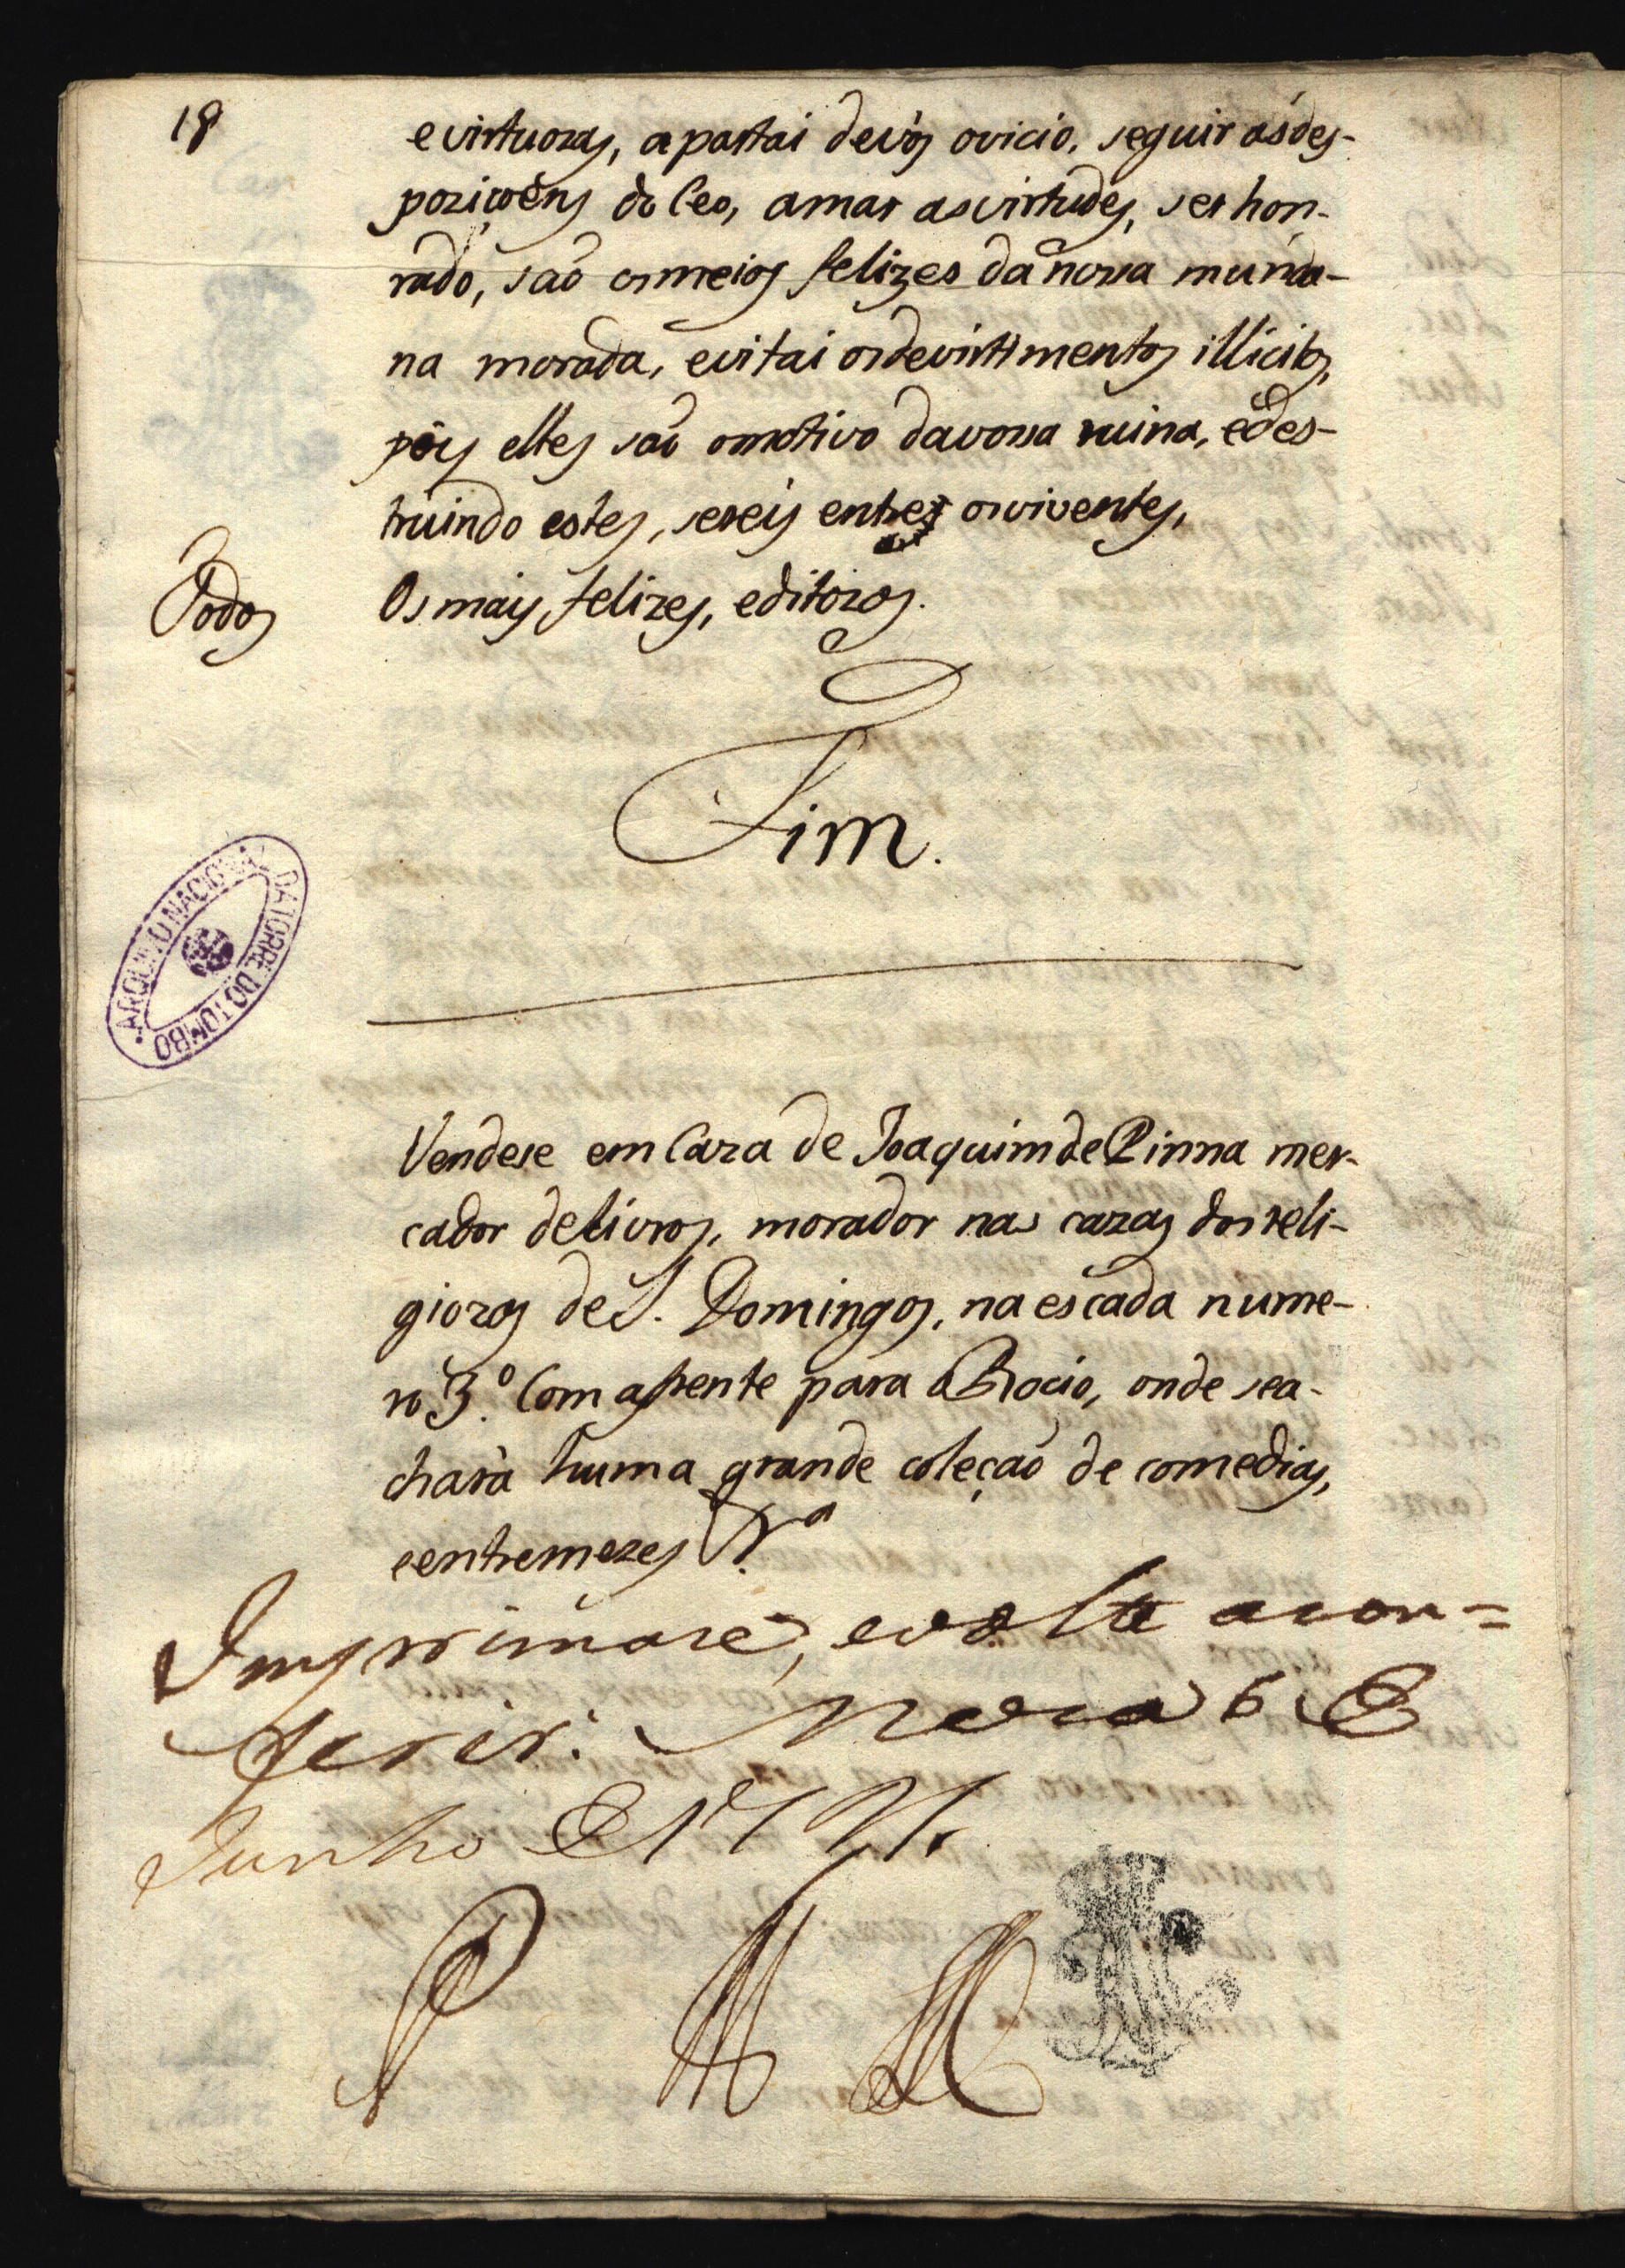 18
e virtuozas, apartai devós o vicio, seguir as des-
poziçoẽns do Ceo, amar as virtudes, ser hon-
rado, saõ os meios felizes da nossa munda-
na morada, evitai os devirtimentos illicitos,
pois elles saõ o motivo da vossa ruina, e des-
truindo estes, sereis entre os viventes,
Todos Os mais felizes, e ditozos.
Fim.
ARQUIVO NACIONAL DA TORRE DO TOMBO
Vendese em Caza de Joaquim de Pinna mer-
cador de livros, morador nas cazas dos reli-
giozos de S. Domingos, na escada nume-
ro 3.º Com a frente para o Rocio, onde se a-
chará huma grande coleçaõ de comedias,
e entremezes &.ª
Imprimase, e volte a con-
ferir. Meza 6 de
Junho de 17